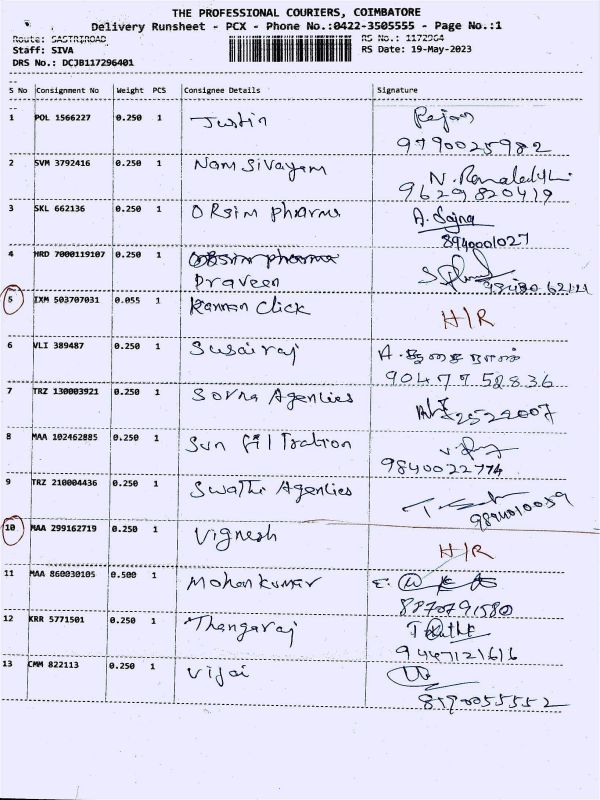 THE PROFESSIONAL COURIERS, COIMBATORE
Delivery Runsheet - PCX - Phone No.:0422-3505555 - Page No.:1
Route: SASTRIROAD RS No.: 1172964
Staff: SIVA RS Date: 19-May-2023
DRS No.: DCJB117296401
S No Consignment No Weight PCS Consignee Details Signature
1 POL 1566227 0.250 1 Justin Rajan
9790025982
2 SVM 3792416 0.250 1 Nam Sivayam N.
9629820419
3 SKL 662136 0.250 1 ORSim pharma A. Sajna
8940001027
4 HRD 7000119107 0.250 1 Orsim pharma
Praveen
5 IXM 503707031 0.055 1 Kannan Click H/R
6 VLI 389487 0.250 1 Susairaj A.
9047758836
7 TRZ 130003921 0.250 1 Sorna Agencies 2522007
8 MAA 102462885 0.250 1 Sun filtration
9840022774
9 TRZ 210004436 0.250 1 Swathi Agencies
9894010059
10 MAA 299162719 0.250 1 Vignesh H/R
11 MAA 860030105 0.500 1 Mohankumar E.
8870791580
12 KRR 5771501 0.250 1 Thangaraj T
9447121616
13 CMM 822113 0.250 1 Vijai
8190055552